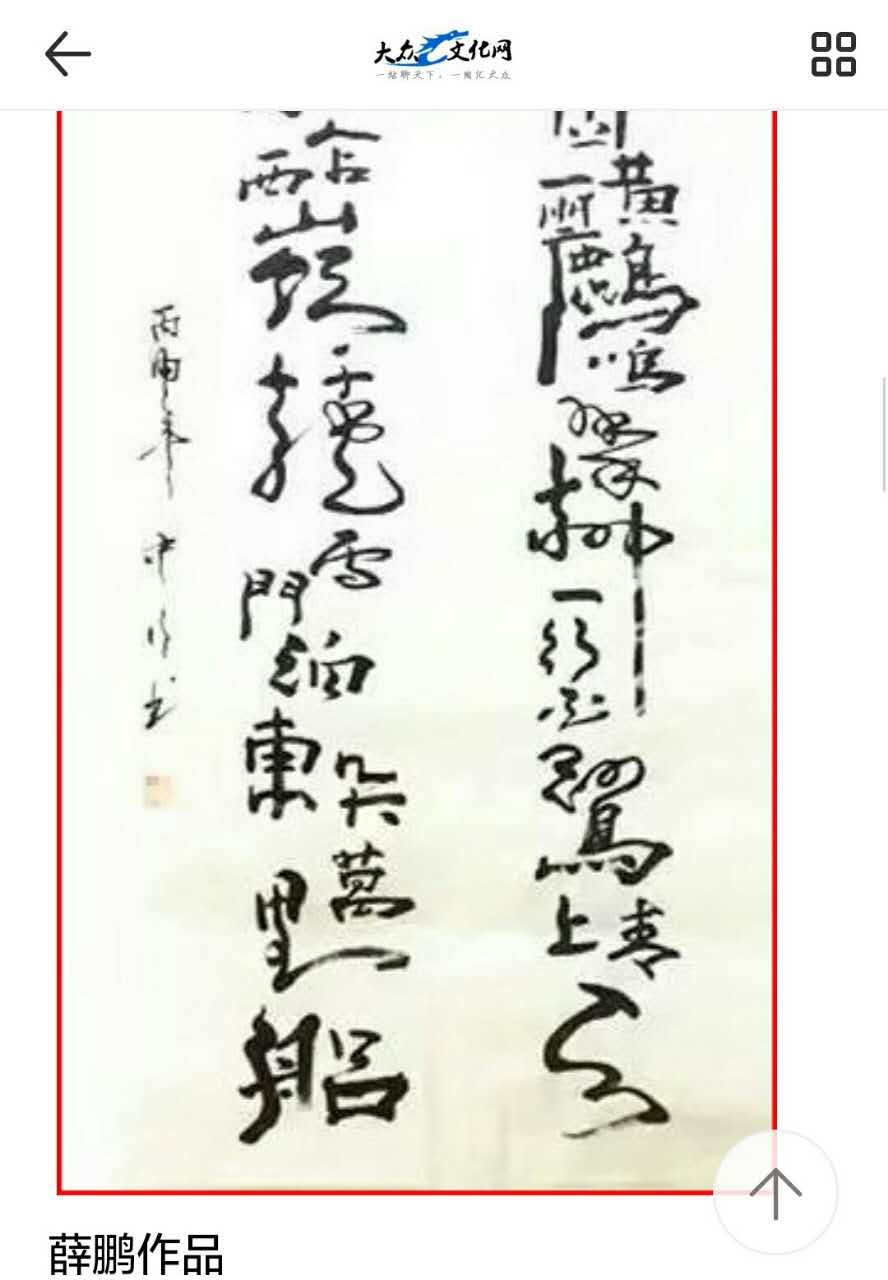 大众艺文化网
一站聊天下,一网汇大众
黄鸝鳴翠柳一行白鷺上青天
含西嶺千秋雪門泊東吳萬里船
丙申年中 书
薛鹏作品